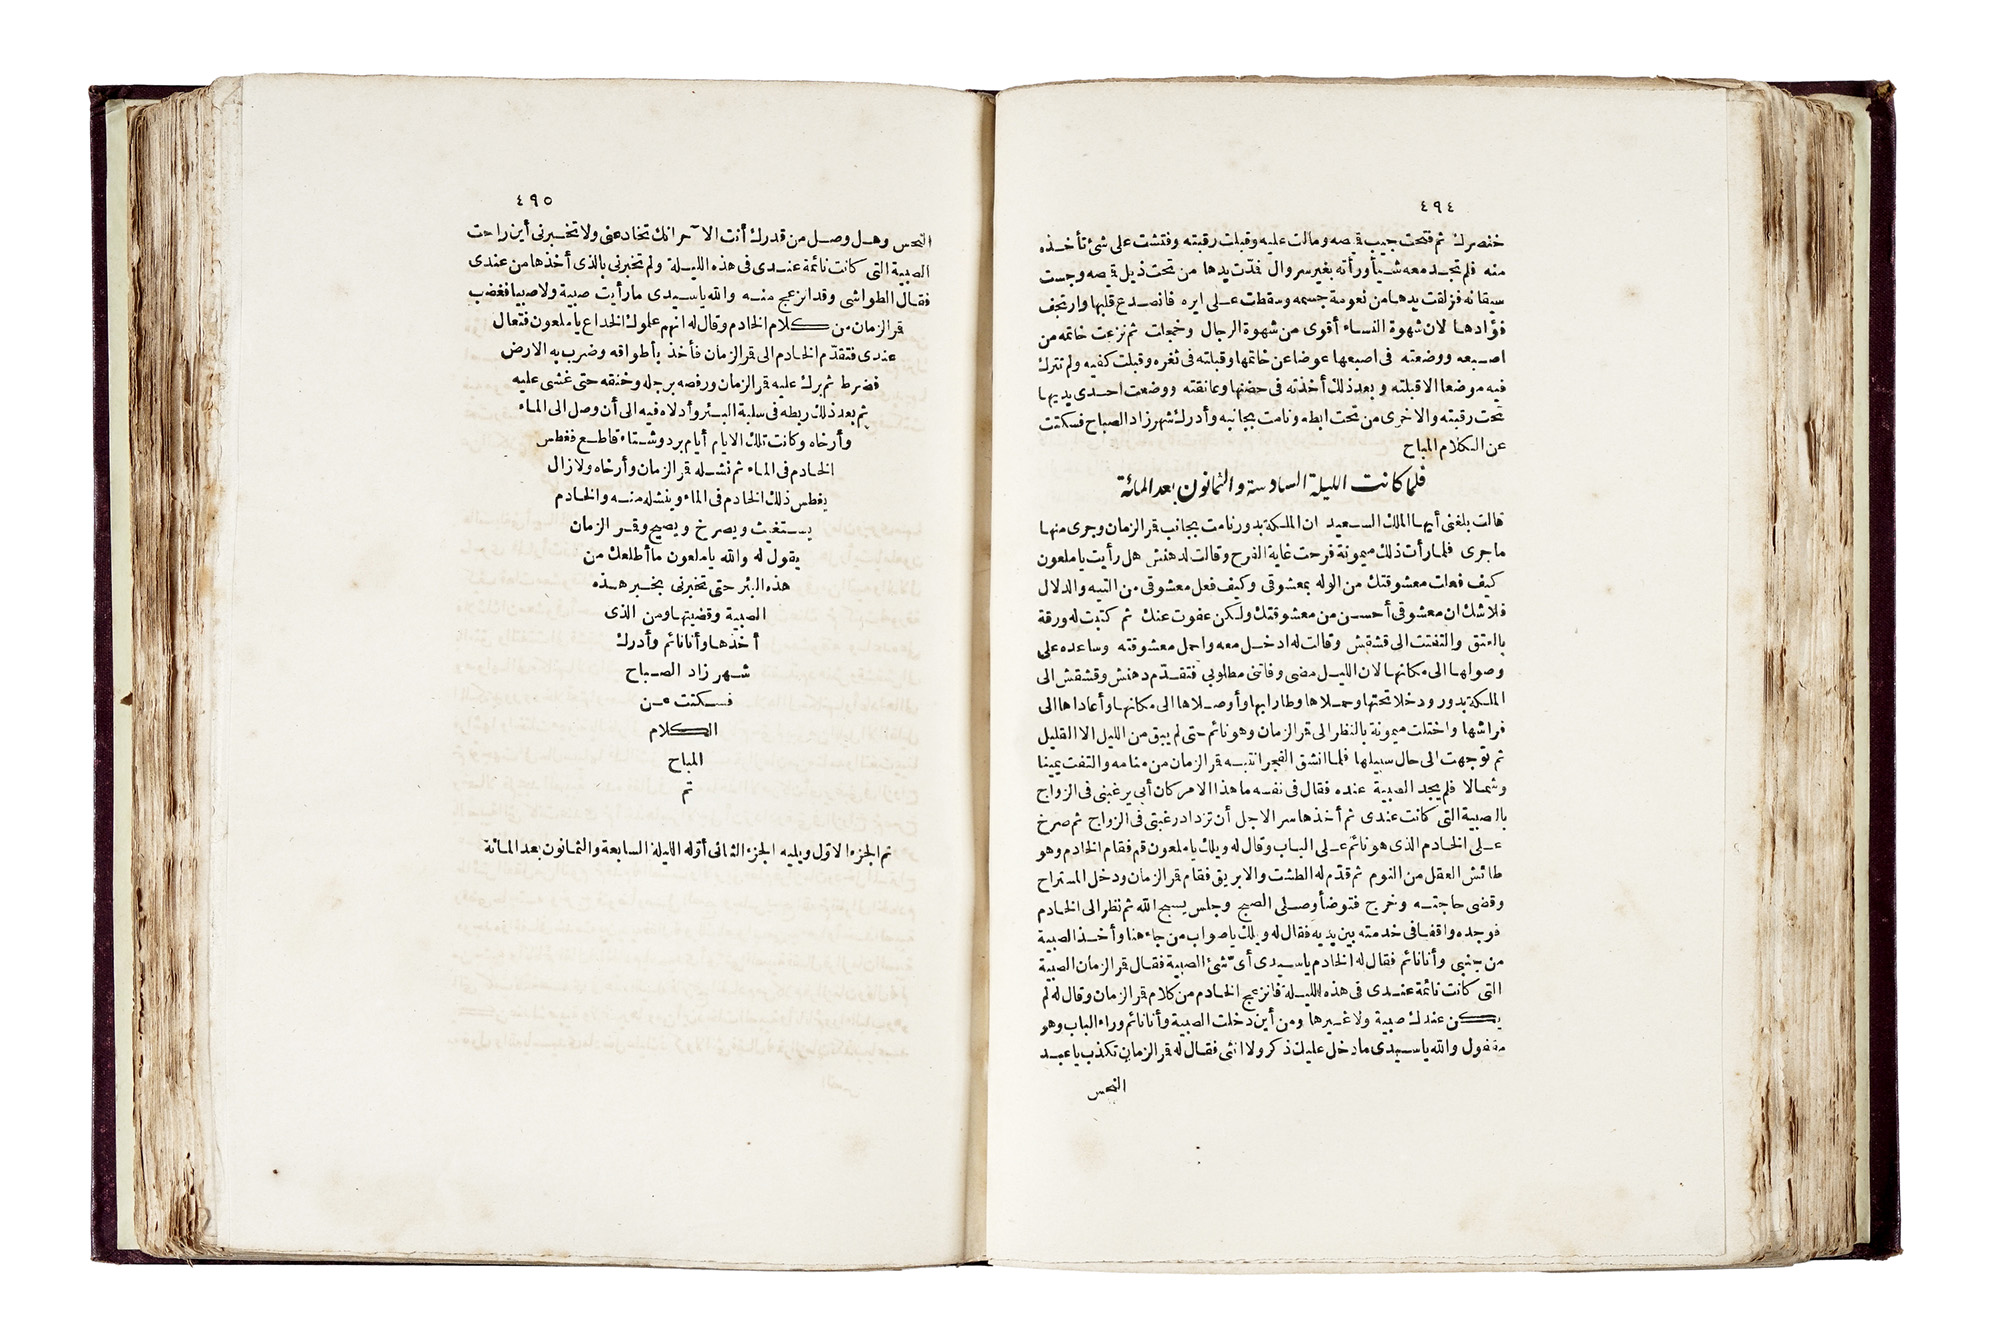 ٤٩٤
خنصرك ثم فتحت جيب قميصه ومالت عليه وقبلت رقبته وفتشت على شئ تأخذه
منه فلم تجد معه شيأ ورأته بغير سروال فدّت يدها من تحت ذيل قميصه وجست
سيقانه فزلقت يدها من نعومة جسمه وسقطت على ايره فانصدع قلبها وارتجف
فؤادها لان شهوة النساء أقوى من شهوة الرجال وخجلت ثم نزعت خاتمه من
اصبعه ووضعته فى اصبعها عوضا عن خاتمها وقبلته فى ثغره وقبلت كفيه ولم تترك
فيه موضعا الا قبلته وبعد ذلك أخذته فى حضنها وعانقته ووضعت احدى يديها
تحت رقبته والاخرى من تحت ابطه ونامت بجانبه وأدرك شهرزاد الصباح فسكتت
عن الكلام المباح
فلما كانت الليلة السادسة والثمانون بعد المائة
قالت بلغنى أيها الملك السعيد ان الملكة بدور نامت بجانب قمر الزمان وجرى منها
ما جرى فلما رأت ذلك ميمونة فرحت غاية الفرح وقالت لدهنش هل رأيت ياملعون
كيف فعلت معشوقتك من الوله بمعشوقى وكيف فعل معشوقى من التيه والدلال
فلاشك ان معشوقى أحسن من معشوقتك ولكن عفوت عنك ثم كتبت له ورقة
بالعتق والتفتت الى قشقش وقالت له ادخل معه واحمل معشوقته وساعده على
وصولها الى مكانها لان الليل مضى وفاتنى مطلوبى فتقدم دهنش وقشقش الى
الملكة بدور ودخلا تحتها وحملاها وطارا بها وأوصلاها الى مكانها وأعاداها الى
فراشها واختلت ميمونة بالنظر الى قمر الزمان وهو نائم حتى لم يبق من الليل الا القليل
ثم توجهت الى حال سبيلها فلما انشق الفجر انتبه قمر الزمان من منامه والتفت يمينا
وشمالا فلم يجد الصبية عنده فقال فى نفسه ما هذا الامر كان أبى يرغبنى فى الزواج
بالصبية التى كانت عندى ثم أخذها سر الاجل أن تزداد رغبتى فى الزواج ثم صرخ
على الخادم الذى هو نائم على الباب وقال له ويلك ياملعون قم فقام الخادم وهو
طائش العقل من النوم ثم قدّم له الطشت والابريق فقام قمر الزمان ودخل المستراح
وقضى حاجته وخرج فتوضأ وصلى الصبح وجلس يسبح الله ثم نظر الى الخادم
فوجده واقفا فى خدمته بين يديه فقال له ويلك ياصواب من جاء هنا وأخذ الصبية
من جنبى وأنا نائم فقال له الخادم ياسيدى أىّ شئ الصبية فقال قمر الزمان الصبية
التى كانت نائمة عندى فى هذه الليلة فانزعج الخادم من كلام قمر الزمان وقال له لم
يكن عندك صبية ولا غيرها ومن أين دخلت الصبية وأنا نائم وراء الباب وهو
مقفول والله ياسيدى ما دخل عليك ذكر ولا انثى فقال له قمر الزمان تكذب ياعبد
النحس
٤٩٥
النحس وهل وصل من قدرك أنت الآخر انك تخادعنى ولا تخبرنى أين راحت
الصبية التى كانت نائمة عندى فى هذه الليلة ولم تخبرنى بالذى أخذها من عندى
فقال الطواشى وقد انزعج منه والله ياسيدى ما رأيت صبية ولا صبيا فغضب
قمر الزمان من كلام الخادم وقال له انهم علموك الخداع ياملعون فتعال
عندى فتقدّم الخادم الى قمر الزمان فأخذ بأطواقه وضرب به الارض
فضرط ثم برك عليه قمر الزمان ورفصه برجله وخنقه حتى غشى عليه
ثم بعد ذلك ربطه فى سلبة البئر وأدلاه فيه الى أن وصل الى الماء
وأرخاه وكانت تلك الايام أيام برد وشتاء قاطع فغطس
الخادم فى الماء ثم نشله قمر الزمان وأرخاه ولازال
يغطس ذلك الخادم فى الماء وينشله منه والخادم
يستغيث ويصرخ ويصيح وقمر الزمان
يقول له والله ياملعون ما أطلعك من
هذه البئر حتى تخبرنى بخبر هذه
الصبية وقضيتها ومن الذى
أخذها وأنا نائم وأدرك
شهرزاد الصباح
فسكتت عن
الكلام
المباح
تم
تم الجزء الاوّل ويليه الجزء الثانى أوّله الليلة السابعة والثمانون بعد المائة